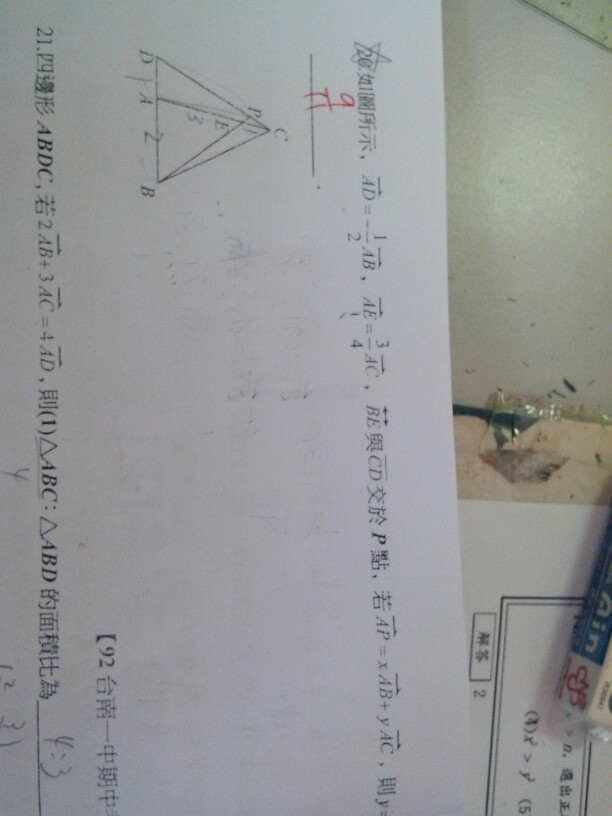 20.如圖所示，AD=-1/2 AB，AE=3/4 AC，BE與CD交於P點，若AP=xAB+yAC，則y=
9
11
C
P
E
3
D
1
A
2
B
【92台南一中期中考
21.四邊形ABDC，若2AB+3AC=4AD，則(1)△ABC：△ABD的面積比為
4:3
解答 2
n，選出正
(4)x² > y² (5